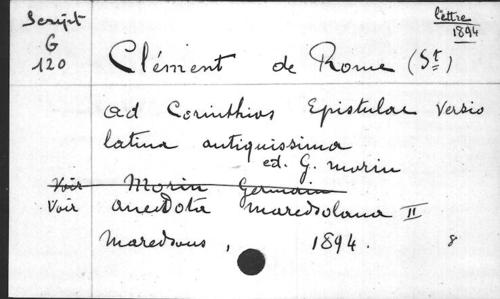 Script
G
120
lettre
1894
Clément de Rome (St)
ad Corinthios Epistulae versio
latina antiquissima
ed. G. Morin
Voir Morin Germain
Voir anecdota maredsolana II
Maredsous, 1894. 8